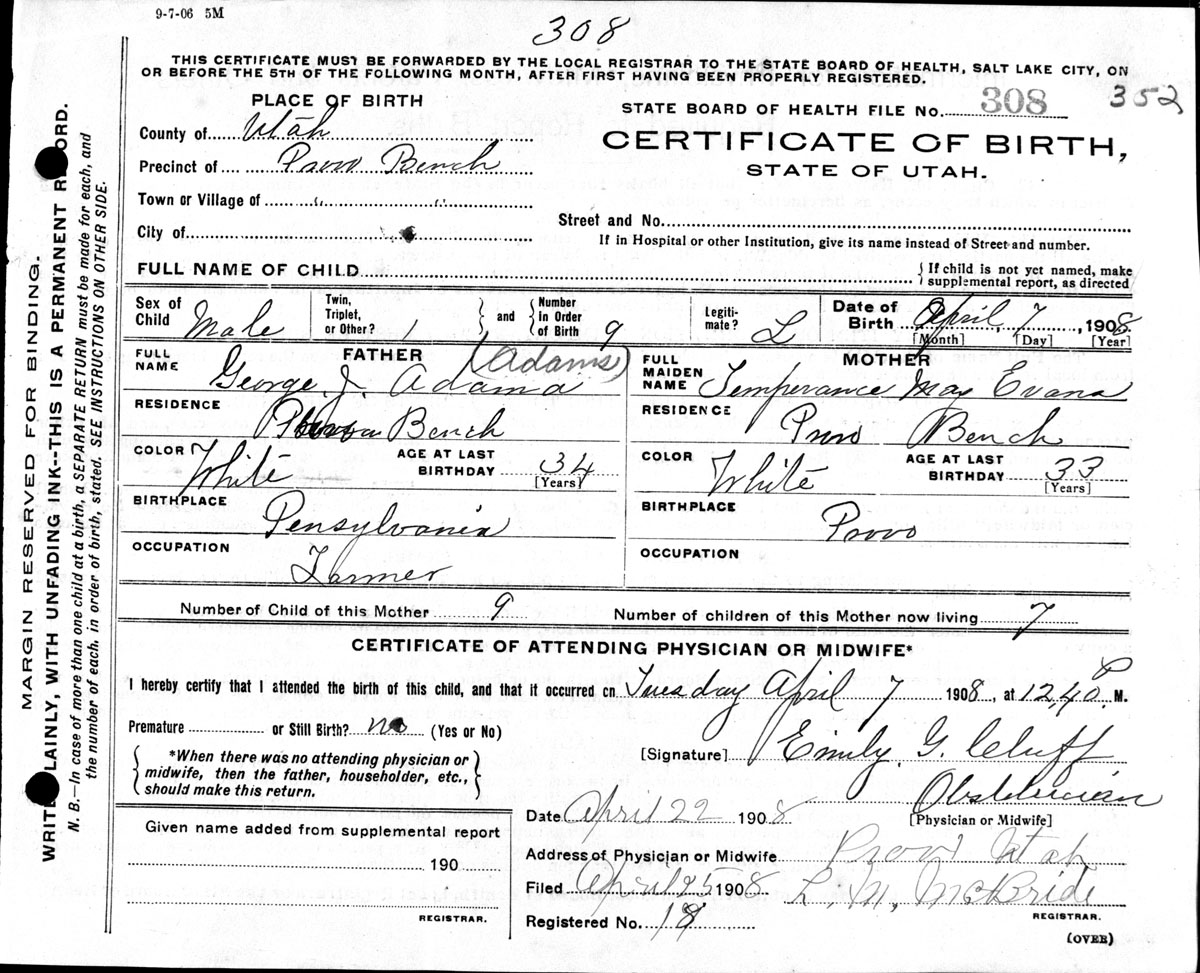 9-7-06 5M
308
THIS CERTIFICATE MUST BE FORWARDED BY THE LOCAL REGISTRAR TO THE STATE BOARD OF HEALTH, SALT LAKE CITY, ON
OR BEFORE THE 5TH OF THE FOLLOWING MONTH, AFTER FIRST HAVING BEEN PROPERLY REGISTERED.
PLACE OF BIRTH
STATE BOARD OF HEALTH FILE No. 308 352
County of Utah
CERTIFICATE OF BIRTH,
Precinct of Provo Bench
STATE OF UTAH.
Town or Village of " "
Street and No.
City of
If in Hospital or other Institution, give its name instead of Street and number.
FULL NAME OF CHILD
If child is not yet named, make
supplemental report, as directed
Sex of Child Male
Twin, Triplet, or Other? 1
and
Number in Order of Birth 9
Legitimate? L
Date of Birth April 7, 1908
[Month] [Day] [Year]
FATHER
FULL NAME George J. Adama (Adams)
RESIDENCE
Provo Bench
COLOR White
AGE AT LAST BIRTHDAY 34
[Years]
BIRTHPLACE
Pensylvania
OCCUPATION
Farmer
MOTHER
FULL MAIDEN NAME Temperance May Evans
RESIDENCE
Provo Bench
COLOR White
AGE AT LAST BIRTHDAY 33
[Years]
BIRTHPLACE
Provo
OCCUPATION
Number of Child of this Mother 9 Number of children of this Mother now living 7
CERTIFICATE OF ATTENDING PHYSICIAN OR MIDWIFE*
I hereby certify that I attended the birth of this child, and that it occurred on Tuesday April 7 1908, at 12,40 P M.
Premature or Still Birth? no (Yes or No)
*When there was no attending physician or
midwife, then the father, householder, etc.,
should make this return.
[Signature] Emily G. Cluff
Obstetrician
[Physician or Midwife]
Date April 22 1908
Given name added from supplemental report
190
REGISTRAR.
Address of Physician or Midwife Provo Utah
Filed April 25 1908 L. M. McBride
REGISTRAR.
Registered No. 18
(OVER)
MARGIN RESERVED FOR BINDING.
WRITE LAINLY, WITH UNFADING INK--THIS IS A PERMANENT R ORD.
N. B.--In case of more than one child at a birth, a SEPARATE RETURN must be made for each, and
the number of each, in order of birth, stated. SEE INSTRUCTIONS ON OTHER SIDE.